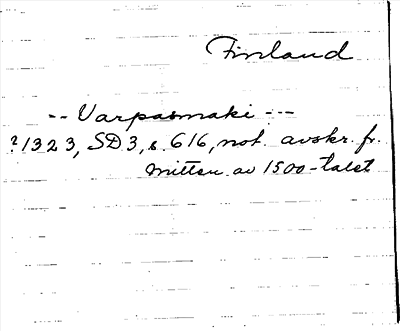 Finland
-- Varpasmaki ---
?1323, SD 3, s. 616, not. avskr. fr.
mitten av 1500-talet